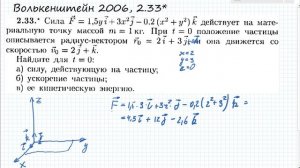 Волькенштейн 2006, 2.33*
2.33.* Сила F⃗ = 1,5y i⃗ + 3x² j⃗ − 0,2(x² + y²) k⃗ действует на мате-
риальную точку массой m = 1 кг. При t = 0 положение частицы
описывается радиус-вектором r⃗₀ = 2 i⃗ + 3 j⃗, и она движется со
скоростью v⃗₀ = 2 j⃗ + k⃗.
Найдите для t = 0:
а) силу, действующую на частицу;
б) ускорение частицы;
в) ее кинетическую энергию.
x=2
y=3
z=0
z
F⃗ = 1,5·3 i⃗ + 3·2² j⃗ − 0,2(2² + 3²) k⃗ =
= 4,5 i⃗ + 12 j⃗ − 2,6 k⃗
y
x